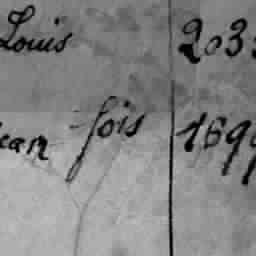 Louis 203
ean fois 169